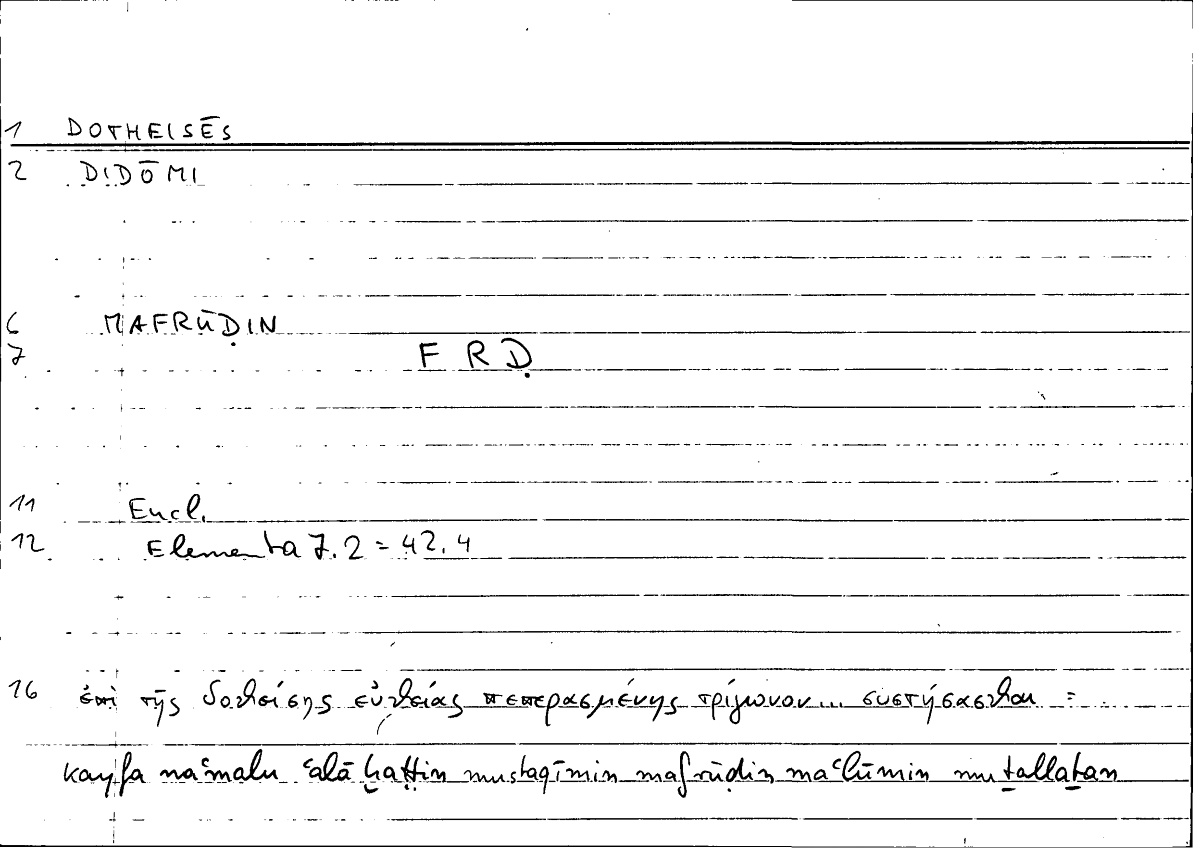 1 DOTHEISĒS
2 DIDŌMI
6 MAFRŪḌIN
7 F R Ḍ
11 Eucl.
12 Elementa 7.2 = 42.4
16 ἐπὶ τῆς δοθείσης εὐθείας πεπερασμένης τρίγωνον... συστήσασθαι =
kayfa naʿmalu ʿalā ḫaṭṭin mustaqīmin mafrūḍin maʿlūmin muṯallaṯan